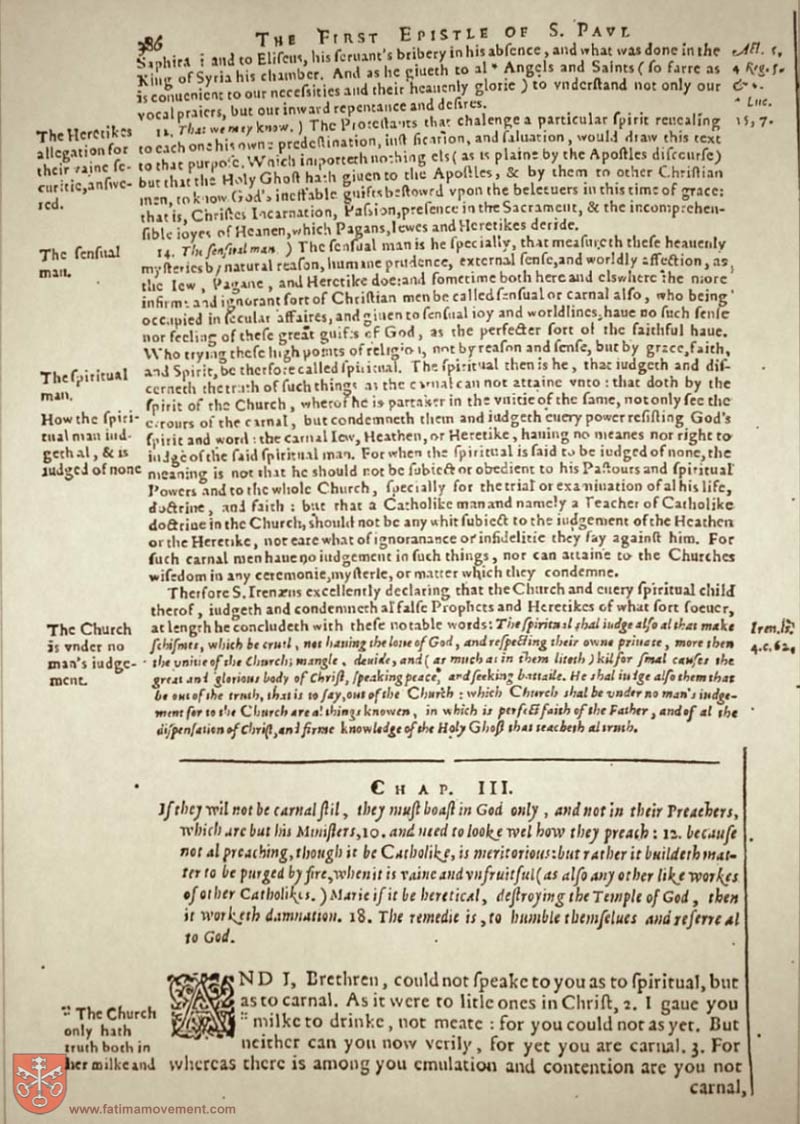 386
THE FIRST EPISTLE OF S. PAVL
Saphira : and to Eliſeus, his ſeruant's bribery in his abſence, and what was done in the
King of Syria his chamber. And as he giueth to al * Angels and Saints (ſo farre as
is conuenient to our neceſſities and their heauenly glorie) to vnderſtand not only our
vocal praiers, but our inward repentance and deſires.
Act. 5,
4 Reg. 5.
&c.
* Luc.
15, 7.
The Heretikes
allegation for
their vaine ſe-
curitie, anſwe-
red.
12. That we may know. ) The Proteſtants that chalenge a particular ſpirit reuealing
to each one his owne predeſtination, iuſtification, and ſaluation, would draw this text
to that purpoſe. Which importeth nothing els (as is plaine by the Apoſtles diſcourſe)
but that the Holy Ghoſt hath giuen to the Apoſtles, & by them to other Chriſtian
men, to know God's ineffable guifts beſtowed vpon the beleeuers in this time of grace:
that is, Chriſtes Incarnation, Paſſion, preſence in the Sacrament, & the incomprehen-
ſible ioyes of Heauen, which Pagans, Iewes and Heretikes deride.
The ſenſual
man.
14. The ſenſual man. ) The ſenſual man is he ſpecially, that meaſureth theſe heauenly
myſteries by natural reaſon, humane prudence, external ſenſe, and worldly affection, as
the Iew, Pagane, and Heretike doe: and ſometime both here and elswhere the more
infirme and ignorant ſort of Chriſtian men be called ſenſual or carnal alſo, who being
occupied in ſecular affaires, and giuen to ſenſual ioy and worldlines, haue no ſuch ſenſe
nor feeling of theſe great guifts of God, as the perfecter ſort of the faithful haue.
Who trying theſe high points of religion, not by reaſon and ſenſe, but by grace, faith,
and Spirit, be therfore called ſpiritual. The ſpiritual then is he, that iudgeth and diſ-
cerneth the truth of ſuch things as the carnal can not attaine vnto: that doth by the
ſpirit of the Church, wherof he is partaker in the vnitie of the ſame, not only ſee the
errours of the carnal, but condemneth them and iudgeth euery power reſiſting God's
ſpirit and word: the carnal Iew, Heathen, or Heretike, hauing no meanes nor right to
iudge of the ſaid ſpiritual man. For when the ſpiritual is ſaid to be iudged of none, the
meaning is not that he ſhould not be ſubiect or obedient to his Paſtours and ſpiritual
Powers and to the whole Church, ſpecially for the trial or examination of al his life,
doctrine, and faith: but that a Catholike man and namely a Teacher of Catholike
doctrine in the Church, ſhould not be any whit ſubiect to the iudgement of the Heathen
or the Heretike, not eare what of ignoranance or infidelitie they ſay againſt him. For
ſuch carnal men haue no iudgement in ſuch things, nor can attaine to the Churches
wiſedom in any ceremonie, myſterie, or matter which they condemne.
The ſpiritual
man.
How the ſpiri-
tual man iud-
geth al, & is
iudged of none
Therfore S. Irenæus excellently declaring that the Church and euery ſpiritual child
therof, iudgeth and condemneth al falſe Prophets and Heretikes of what ſort ſoeuer,
at length he concludeth with theſe notable words: The ſpiritual ſhal iudge alſo al that make
ſchiſmes, which be cruel, not hauing the loue of God, and reſpecting their owne priuate, more then
the vnitie of the Church; mangle, deuide, and (as much as in them lieth) kil for ſmal cauſes the
great and glorious body of Chriſt, ſpeaking peace, and ſeeking battaile. He ſhal iudge alſo them that
be out of the truth, that is to ſay, out of the Church: which Church ſhal be vnder no man's iudge-
ment for to the Church are al things knowen, in which is perfect faith of the Father, and of al the
diſpenſation of Chriſt, and firme knowledge of the Holy Ghoſt that teacheth al truth.
The Church
is vnder no
man's iudge-
ment.
Iren. li.
4. c. 62.
CHAP. III.
If they wil not be carnal ſtil, they muſt boaſt in God only, and not in their Preachers,
which are but his Miniſters, 10. and need to looke wel how they preach: 12. becauſe
not al preaching, though it be Catholike, is meritorious: but rather it buildeth mat-
ter to be purged by fire, when it is vaine and vnfruitful (as alſo any other like workes
of other Catholikes.) Marie if it be heretical, deſtroying the Temple of God, then
it worketh damnation. 18. The remedie is, to humble themſelues and referre al
to God.
AND I, Brethren, could not ſpeake to you as to ſpiritual, but
as to carnal. As it were to litle ones in Chriſt, 2. I gaue you
" milke to drinke, not meate: for you could not as yet. But
neither can you now verily, for yet you are carnal. 3. For
whereas there is among you emulation and contention are you not
carnal,
" The Church
only hath
truth both in
her milke and
www.fatimamovement.com